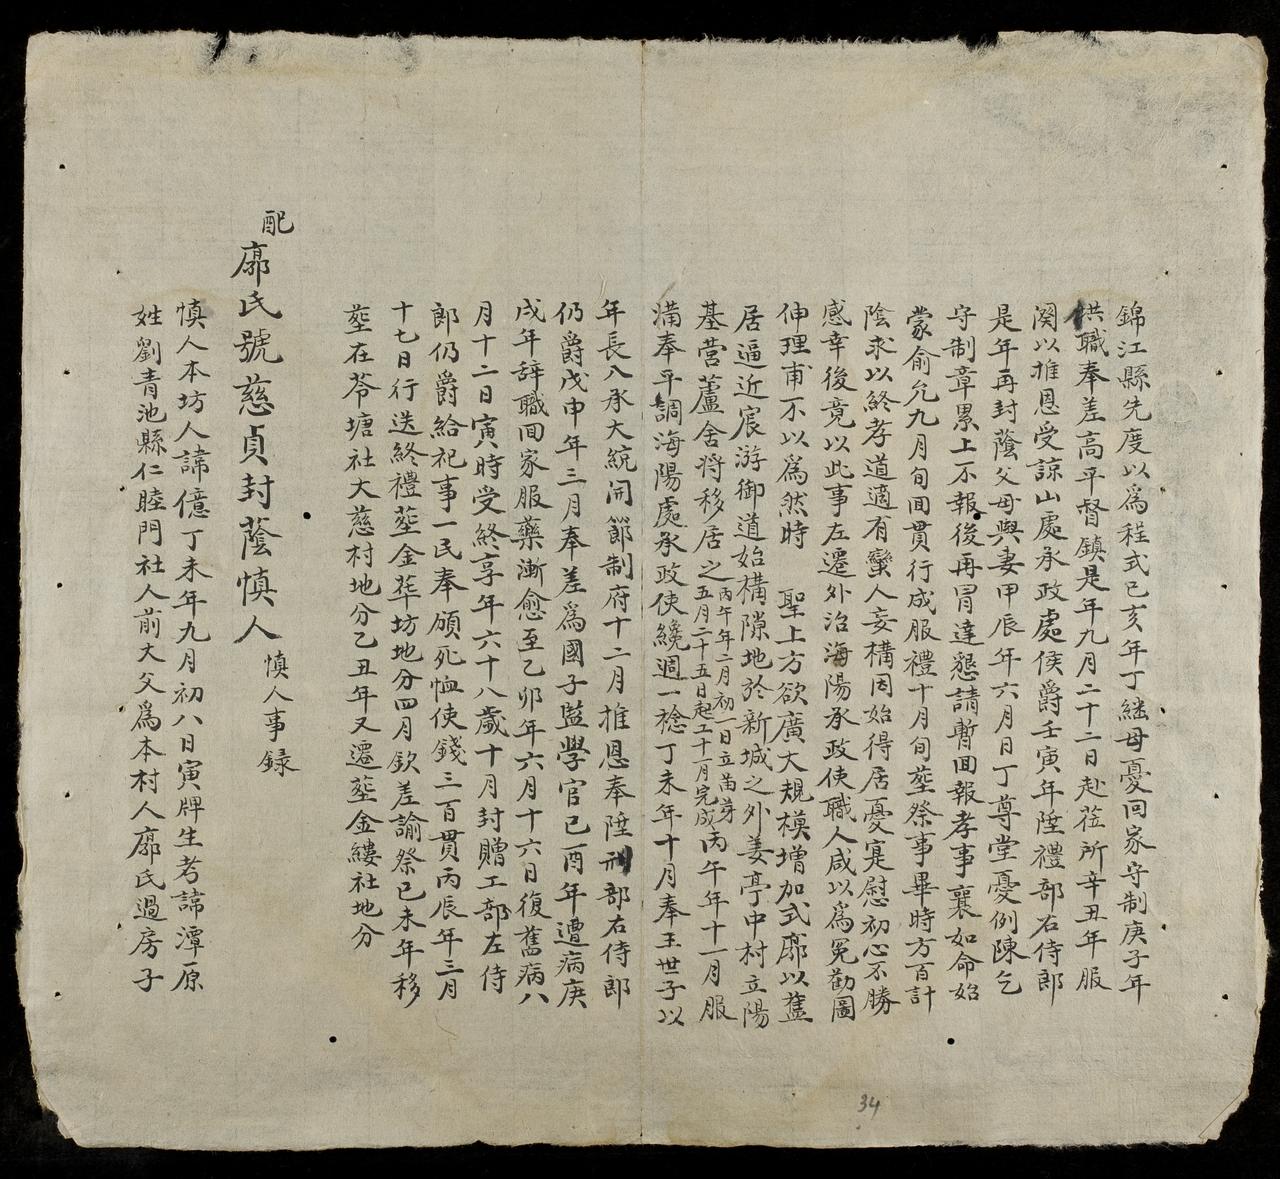 錦江縣先度以爲程式己亥年丁繼母憂回家守制庚子年
供職奉差高平督鎮是年九月二十二日赴莅所辛丑年服
闋以推恩受諒山處承政處侯爵壬寅年陞禮部右侍郎
是年再封蔭父母與妻甲辰年六月日丁尊堂憂例陳乞
守制章累上不報後再冒達懇請暫回報孝事襄如命始
蒙俞允九月旬回貫行成服禮十月旬塟祭事畢時方百計
陰求以終孝道適有蠻人妄構因始得居憂寔慰初心不勝
感幸後竟以此事左遷外治海陽承政使職人咸以爲冤勸圖
伸理甫不以爲然時 聖上方欲廣大規模增加式廓以舊
居逼近宸游御道始構隙地於新城之外姜亭中村立陽
基营蘆舍將移居之丙午年二月初一日立苗芽五月二十五日起工十一月完成丙午年十一月服
滿奉平調海陽處承政使纔週一稔丁未年十月奉王世子以
年長入承大統開節制府十二月推恩奉陞刑部右侍郎
仍爵戊申年三月奉差爲國子監學官己酉年遭病庚
戌年辞職回家服藥漸愈至乙卯年六月十六日復舊病八
月十二日寅時受終享年六十八歲十月封贈工部左侍
郎仍爵給祀事一民奉頒死恤使錢三百貫丙辰年三月
十七日行送終禮塟金苹坊地分四月欽差諭祭己未年移
塟在荅塘社大慈村地分乙丑年又遷塟金縷社地分
配廓氏號慈貞封蔭慎人 慎人事録
慎人本坊人諱億丁未年九月初八日寅牌生考諱潭原
姓劉青池縣仁睦門社人前大父爲本村人廓氏過房子
34